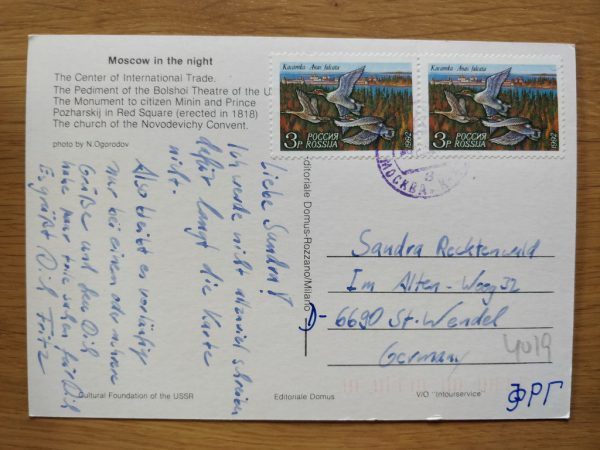 Moscow in the night
The Center of International Trade.
The Pediment of the Bolshoi Theatre of the U
The Monument to citizen Minin and Prince
Pozharskij in Red Square (erected in 1818)
The church of the Novodevichy Convent.
photo by N.Ogorodov
Касатка Anas falcata
3р РОССИЯ
ROSSIJA
1992
Касатка Anas falcata
3р РОССИЯ
ROSSIJA
1992
МОСКВА
Liebe Sandra!
Ich werde nicht allzuviel schreiben
dafür langt die Karte
nicht.
Also bleibt es vorläufig
nur bei einem oder mehrere
Grüße und dem Dich
habe nur für Dich
Es grüßt Dich Fritz
Editoriale Domus-Rozzano/Milano
Sandra Recktenwald
Im Alten-Woog 32
D-6690 St. Wendel
Germany
4019
ФРГ
Cultural Foundation of the USSR
Editoriale Domus
V/O "Intourservice"